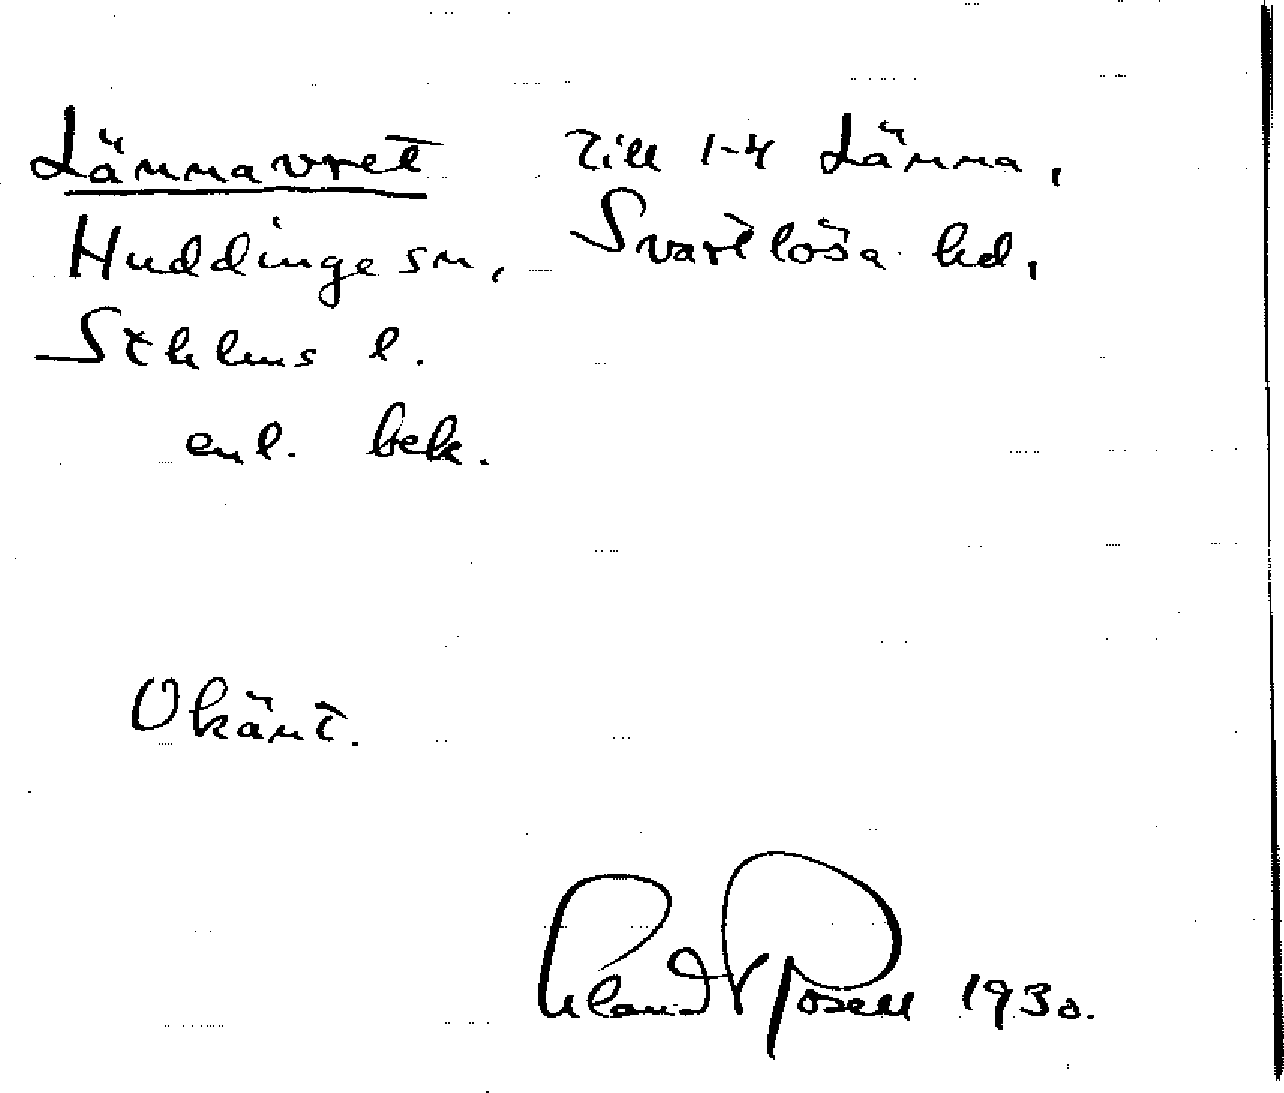 Lännavret till 1-4 Länna,
Huddinge sn, Svartlösa hd,
Sthlms l.
enl. bek.
Okänt.
Rosell 1930.